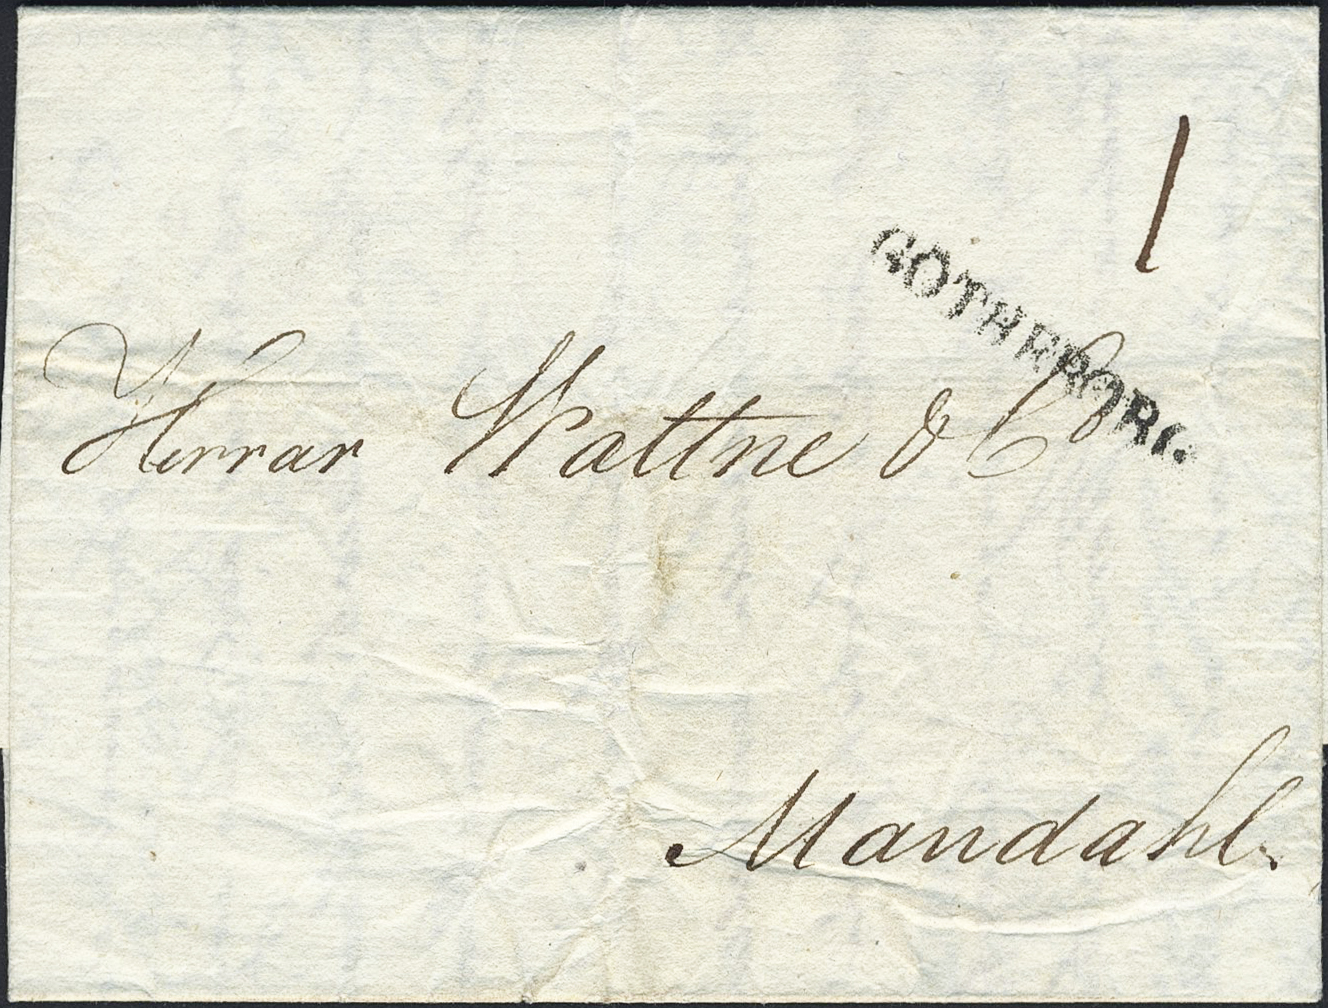 1
GOTHEBORG.
Herrar Wattne & Co
Mandahl.